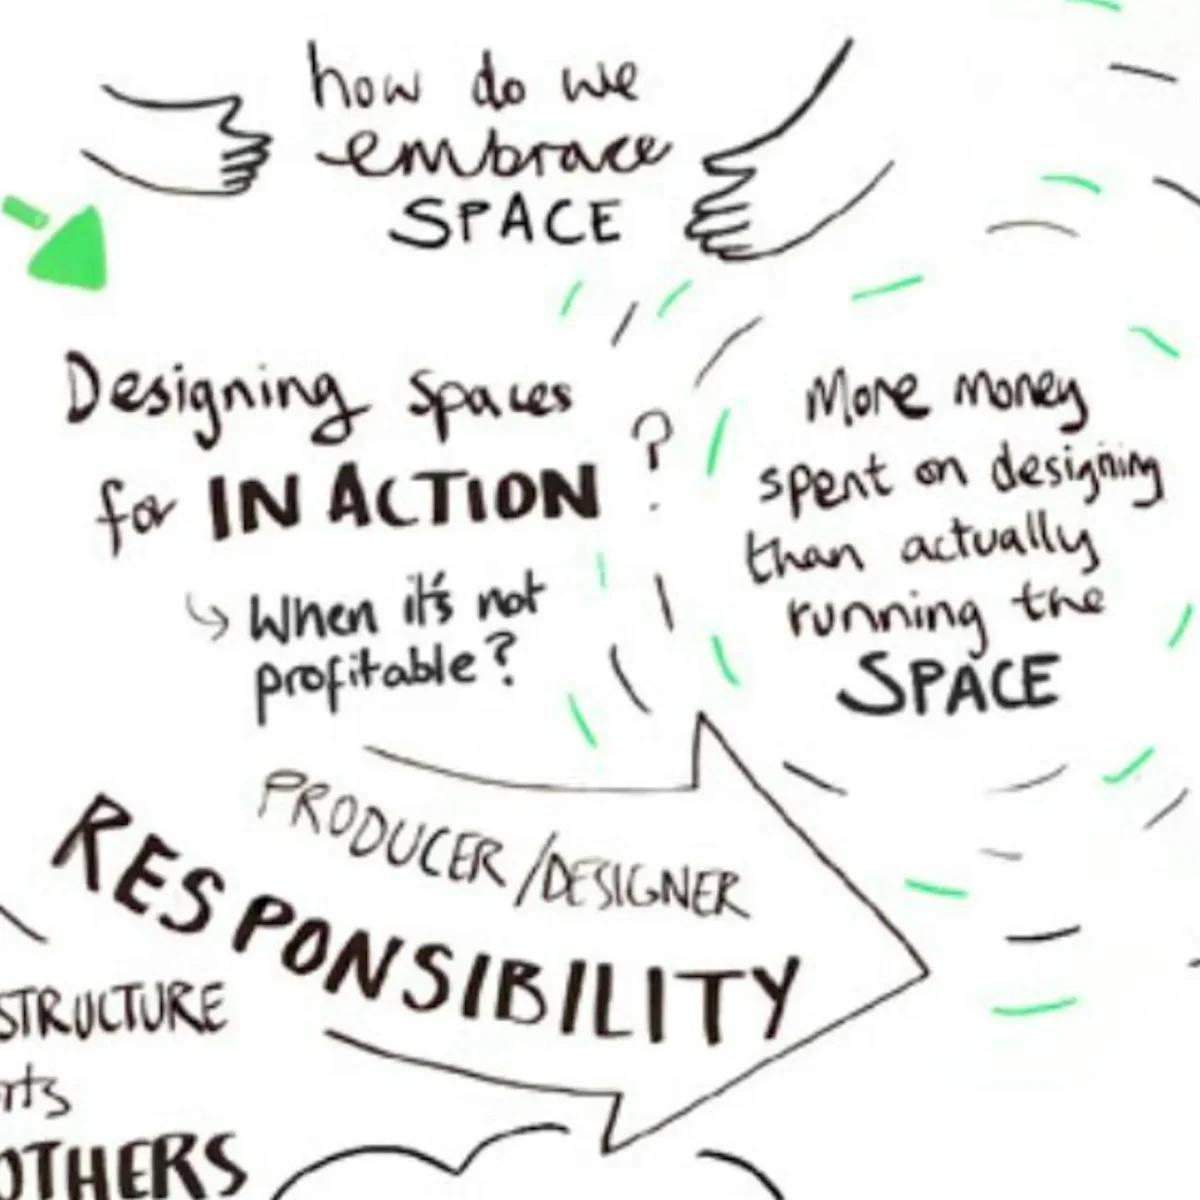 how do we
embrace
SPACE
Designing Spaces
for IN ACTION ?
When it's not
profitable?
More money
spent on designing
than actually
running the
SPACE
PRODUCER/DESIGNER
RESPONSIBILITY
STRUCTURE
rts
OTHERS